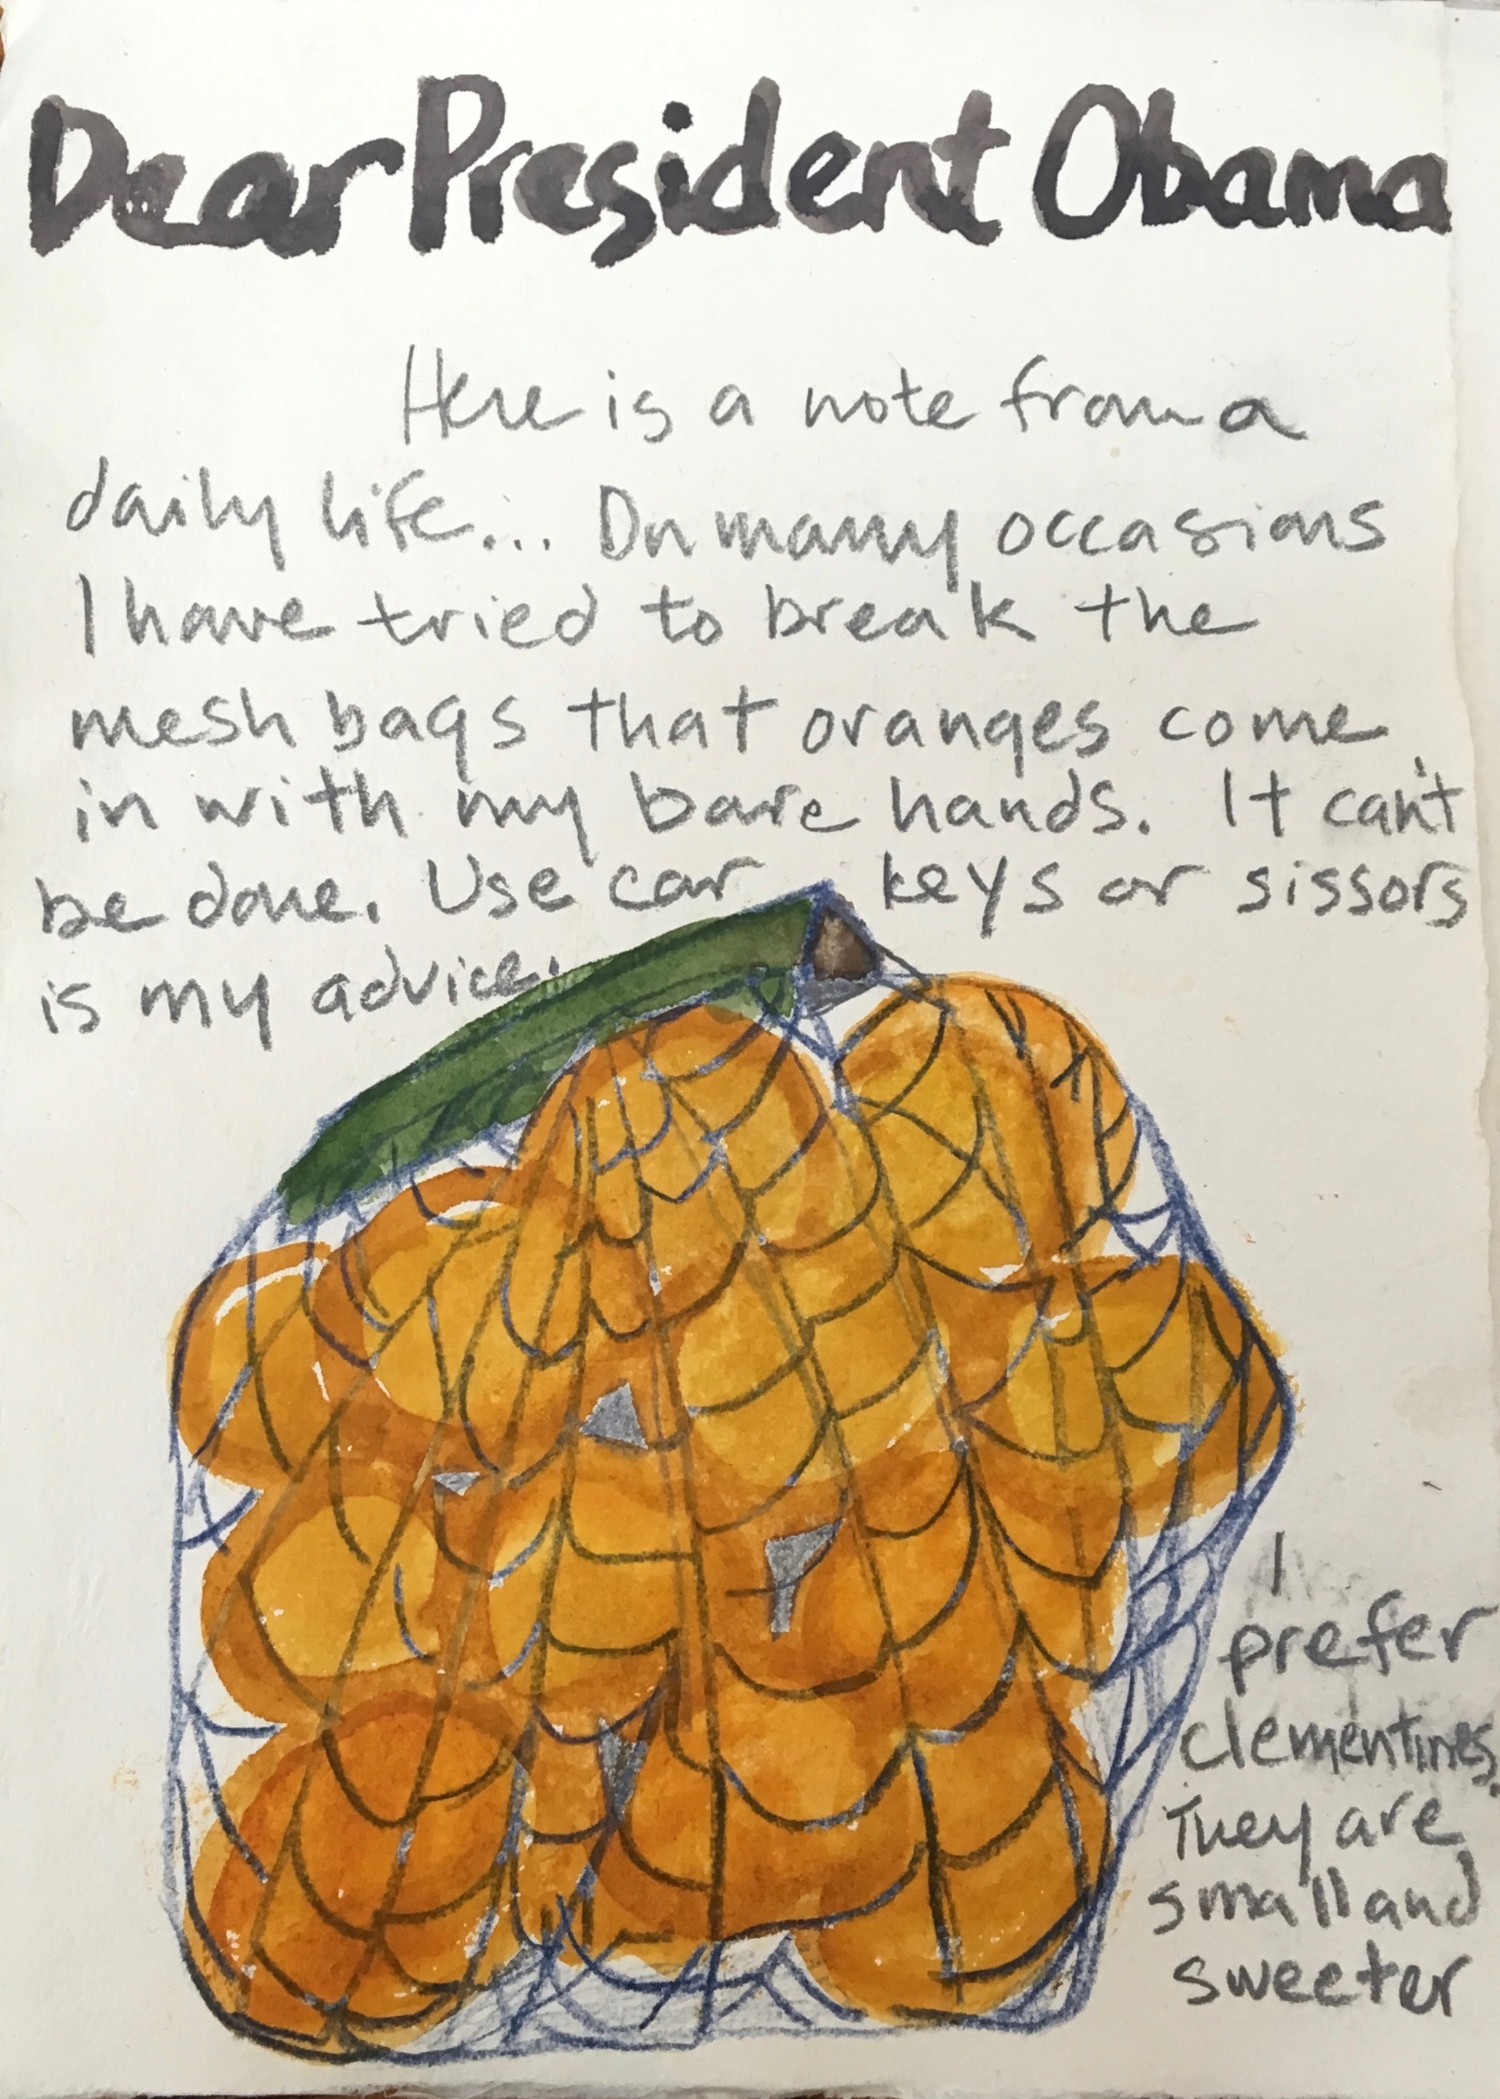 Dear President Obama
Here is a note from a
daily life... On many occasions
I have tried to break the
mesh bags that oranges come
in with my bare hands. It can't
be done. Use car keys or sissors
is my advice.
I
prefer
clementines.
They are
small and
sweeter